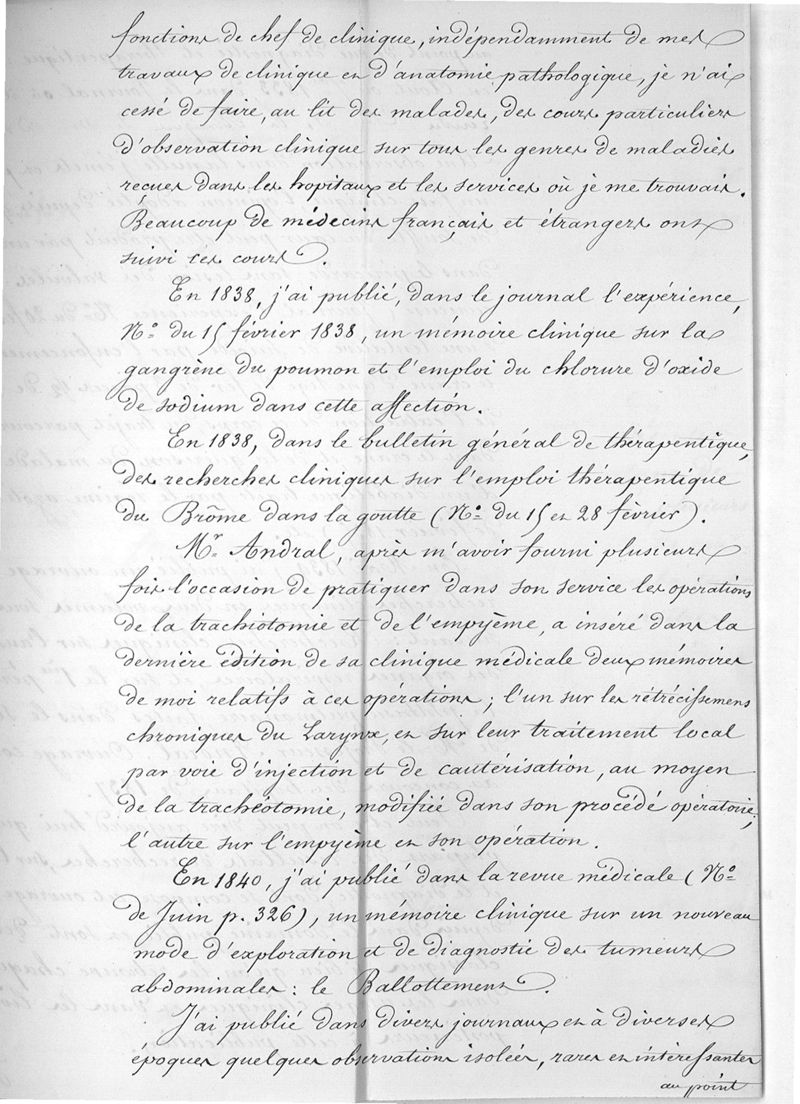 fonctions de chef de clinique, indépendamment de mes
travaux de clinique et d'anatomie pathologique, je n'ai
cessé de faire, au lit des malades, des cours particuliers
d'observation clinique sur tous les genres de maladies
reçues dans les hopitaux et les services où je me trouvais.
Beaucoup de médecins français et étrangers ont
suivi ces cours.
En 1838, j'ai publié, dans le journal l'expérience,
No. du 15 février 1838, un mémoire clinique sur la
gangrène du poumon et l'emploi du chlorure d'oxide
de sodium dans cette affection.
En 1838, dans le bulletin général de thérapentique,
des recherches cliniques sur l'emploi thérapentique
du Brôme dans la goutte (No. du 15 et 28 février).
Mr. Andral, après m'avoir fourni plusieurs
fois l'occasion de pratiquer dans son service les opérations
de la trachiotomie et de l'empyème, a inséré dans la
dernière édition de sa clinique médicale deux mémoires
de moi relatifs à ces opérations; l'un sur les rétrécissemens
chroniques du Larynx, et sur leur traitement local
par voie d'injection et de cautérisation, au moyen
de la trachéotomie, modifiée dans son procédé opératoire;
l'autre sur l'empyème et son opération.
En 1840, j'ai publié dans la revue médicale (No.
de Juin p. 326), un mémoire clinique sur un nouveau
mode d'exploration et de diagnostic des tumeurs
abdominales: le Ballottement.
J'ai publié dans divers journaux et à diverses
époques quelques observations isolées, rares et intéressantes
au point